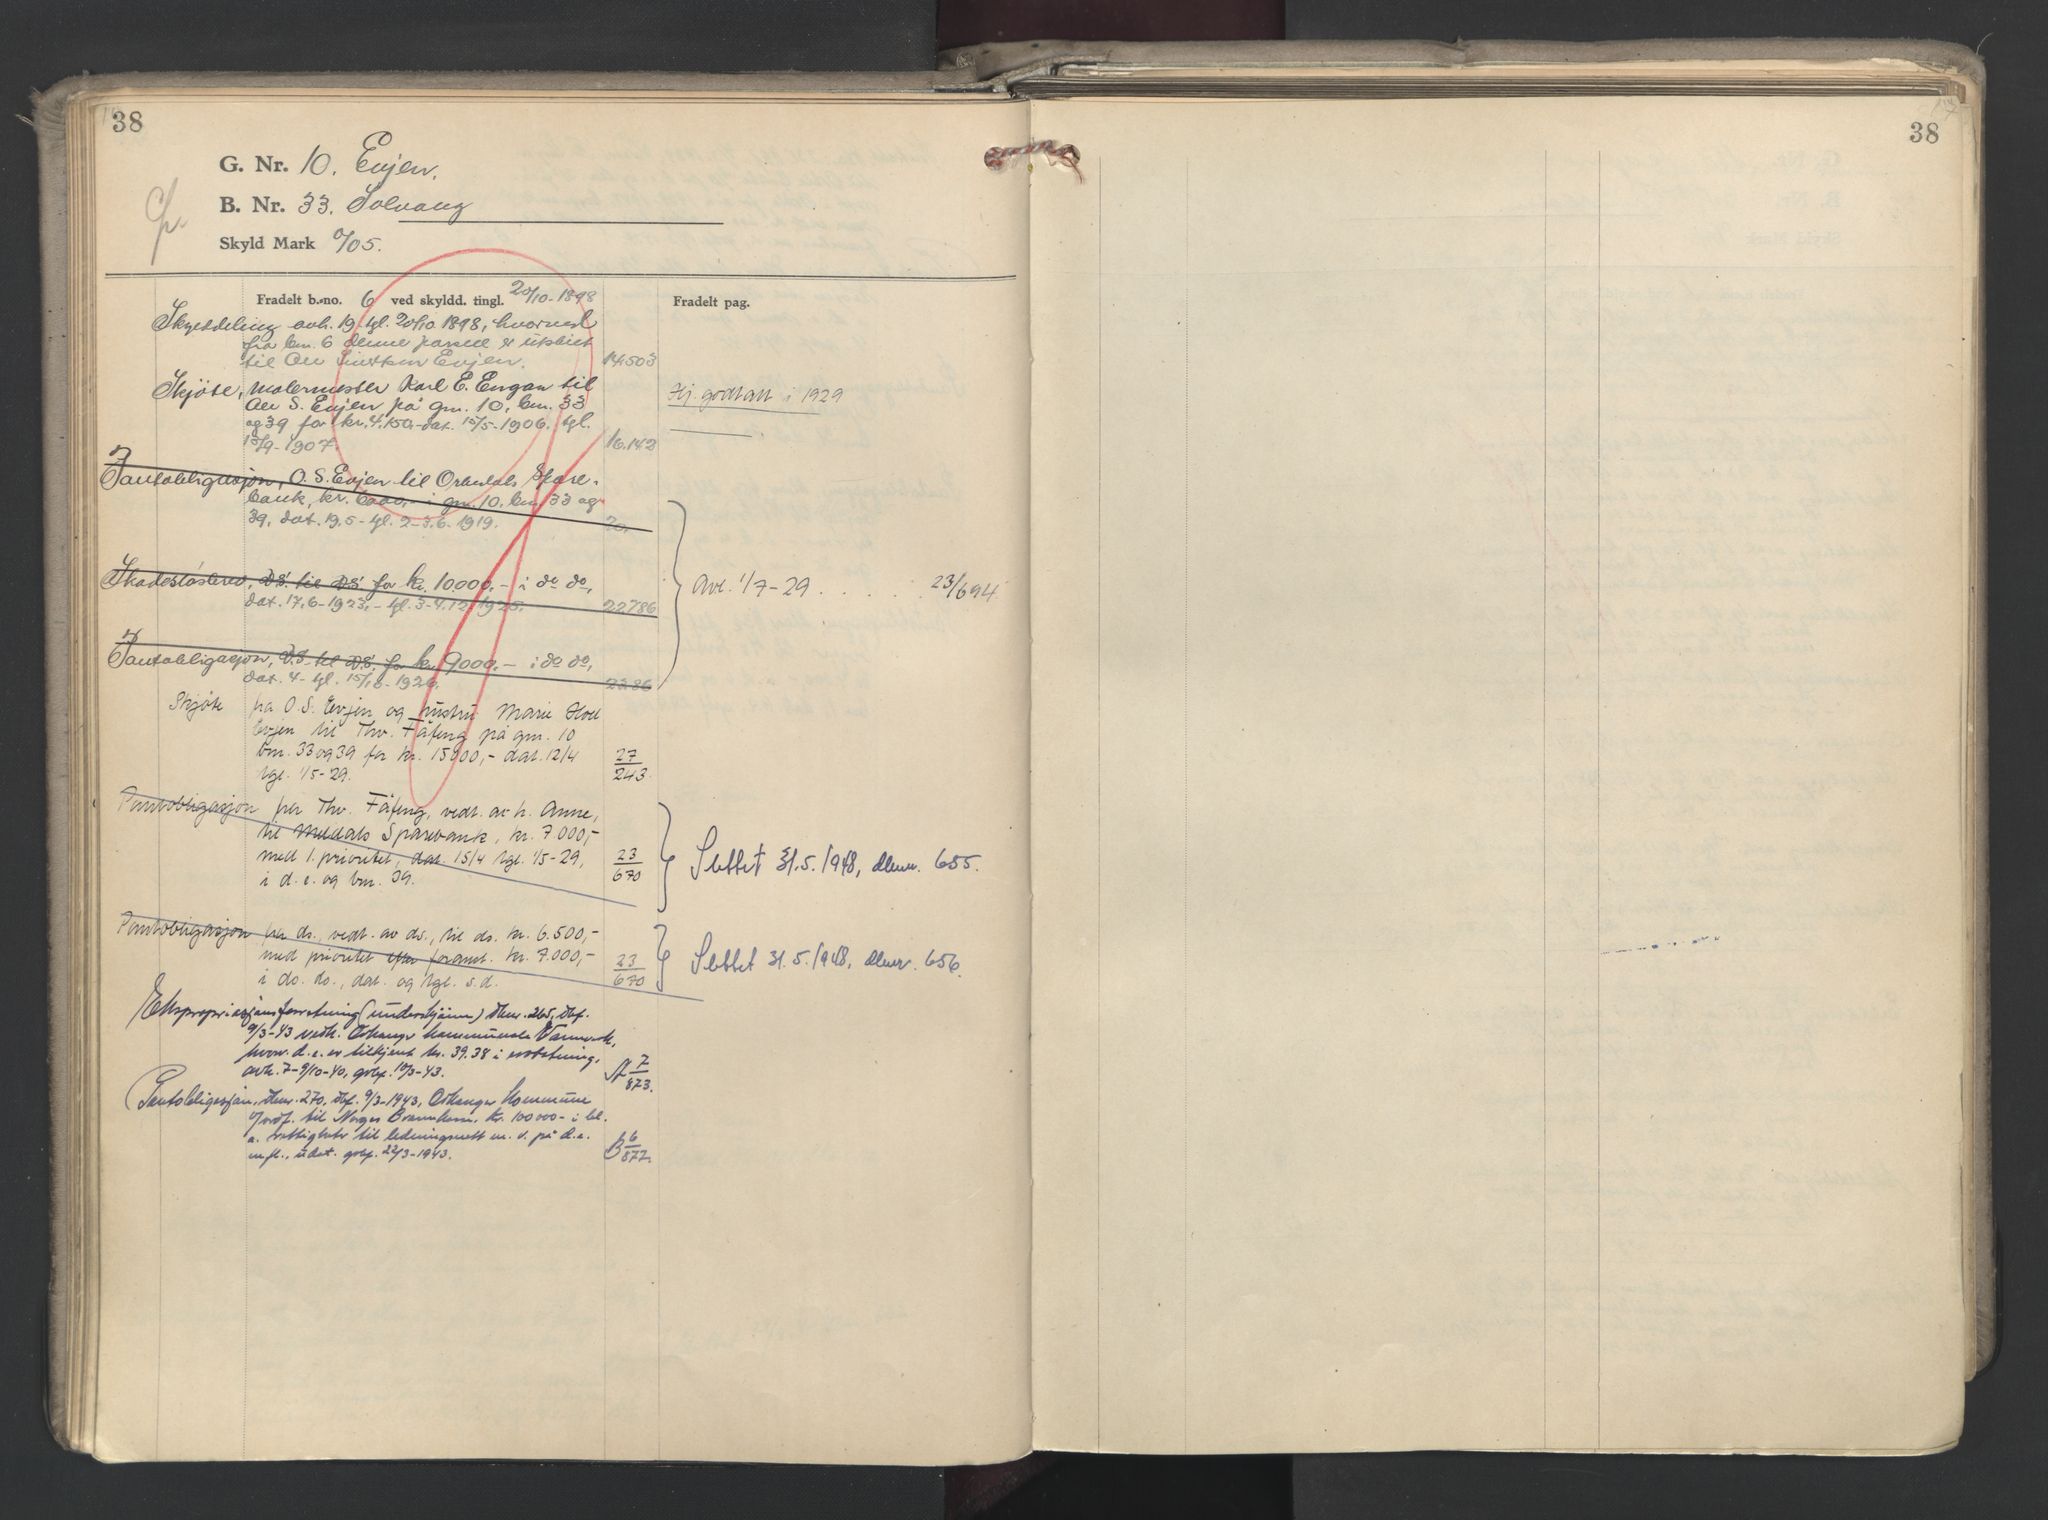 38
G. Nr. 10. Evjen.
B. Nr. 33. Solvang
Skyld Mark 0/05.
Fradelt b.-no. 6 ved skyldd. tingl. 20/10-1898
Fradelt pag.
Skylddeling avh. 19. tgl. 20/10 1898, hvorved
fra bn. 6 denne parsell er utskilt
til Ole Sivertsen Evjen. 14.503
Skjøte, malermester Karl E. Engan til
Ole S. Evjen på gnr. 10, bnr. 33
og 39 for kr. 4.150,- dat. 15/5-1906, tgl.
15/9-1907. 16.142
Hj. godtatt i 1929
Pantobligasjon, O. S. Evjen til Orkedals Spare-
bank, kr. 6000,- i gnr. 10, bnr. 33 og
39, dat. 19.5- tgl. 2-3.6.1919. 20.
Skadesløsbrev, D.S. til D.S. for kr. 10000,- i do do,
dat. 17.6-1923,- tgl. 3-4.12.1925. 22786
Avl. 1/7-29 . . . . . . 23/694
Pantobligasjon, D.S. til D.S. for kr. 9000,- i do do,
dat. 4- tgl. 15/16-1926. 2386
Skjøte fra O. S. Evjen og hustru Marie Hoel
Evjen til Thv. Fåfeng på gnr. 10
bnr. 33 og 39 for kr. 15000,- dat. 12/4
tgl. 1/5-29. 27/243
Pantobligasjon fra Thv. Fåfeng, vedt. av h. Anne,
til Meldals Sparebank, kr. 7.000,-
med 1. prioritet, dat. 15/4 tgl. 1/5-29, 23/670
i d. e. og bnr. 39.
Slettet 31.5.1948, dbnr. 655.
Pantobligasjon fra ds., vedt. av ds., til ds. kr. 6.500,-
med prioritet efter foranst. kr. 7.000,- 23/670
i do. do., dat. og tgl. s.d.
Slettet 31.5.1948, dbnr. 656.
Ekspropriasjonsforretning (underskjønn) dbnr. 265, dbf.
9/3-43 vedk. Orkanger kommunale Vannverk,
hvorv. d. e. er tilkjent kr. 39.38 i erstatning,
avh. 7-9/10-40, gebyf. 10/3-43. A 7/873.
Pantobligasjon, dbnr. 270, dbf. 9/3-1943, Orkanger Kommune
v/ordf. til Norges Brannkasse, kr. 100000- i bl.
a. rettigheter til ledningsnett m. v. på d. e.
m.fl., udat. 22/3-1943. B 6/872.
38